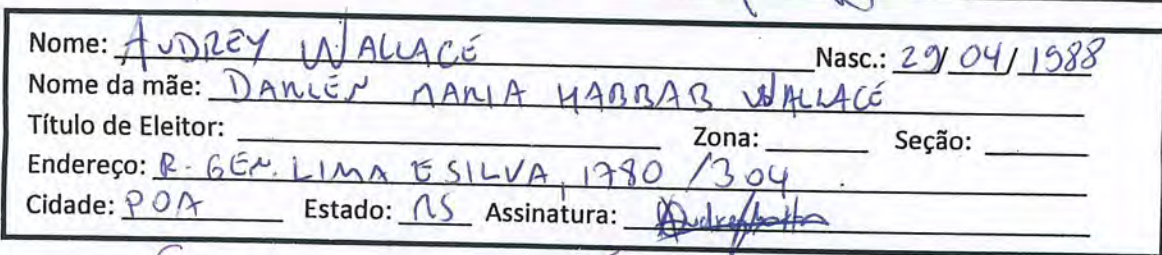 Nome: AUDREY WALLACE Nasc.: 29/04/1988
Nome da mãe: DARLEN MARIA HABBAB WALLACE
Título de Eleitor: Zona: Seção:
Endereço: R. GEN. LIMA E SILVA, 1780 /304
Cidade: POA Estado: RS Assinatura: